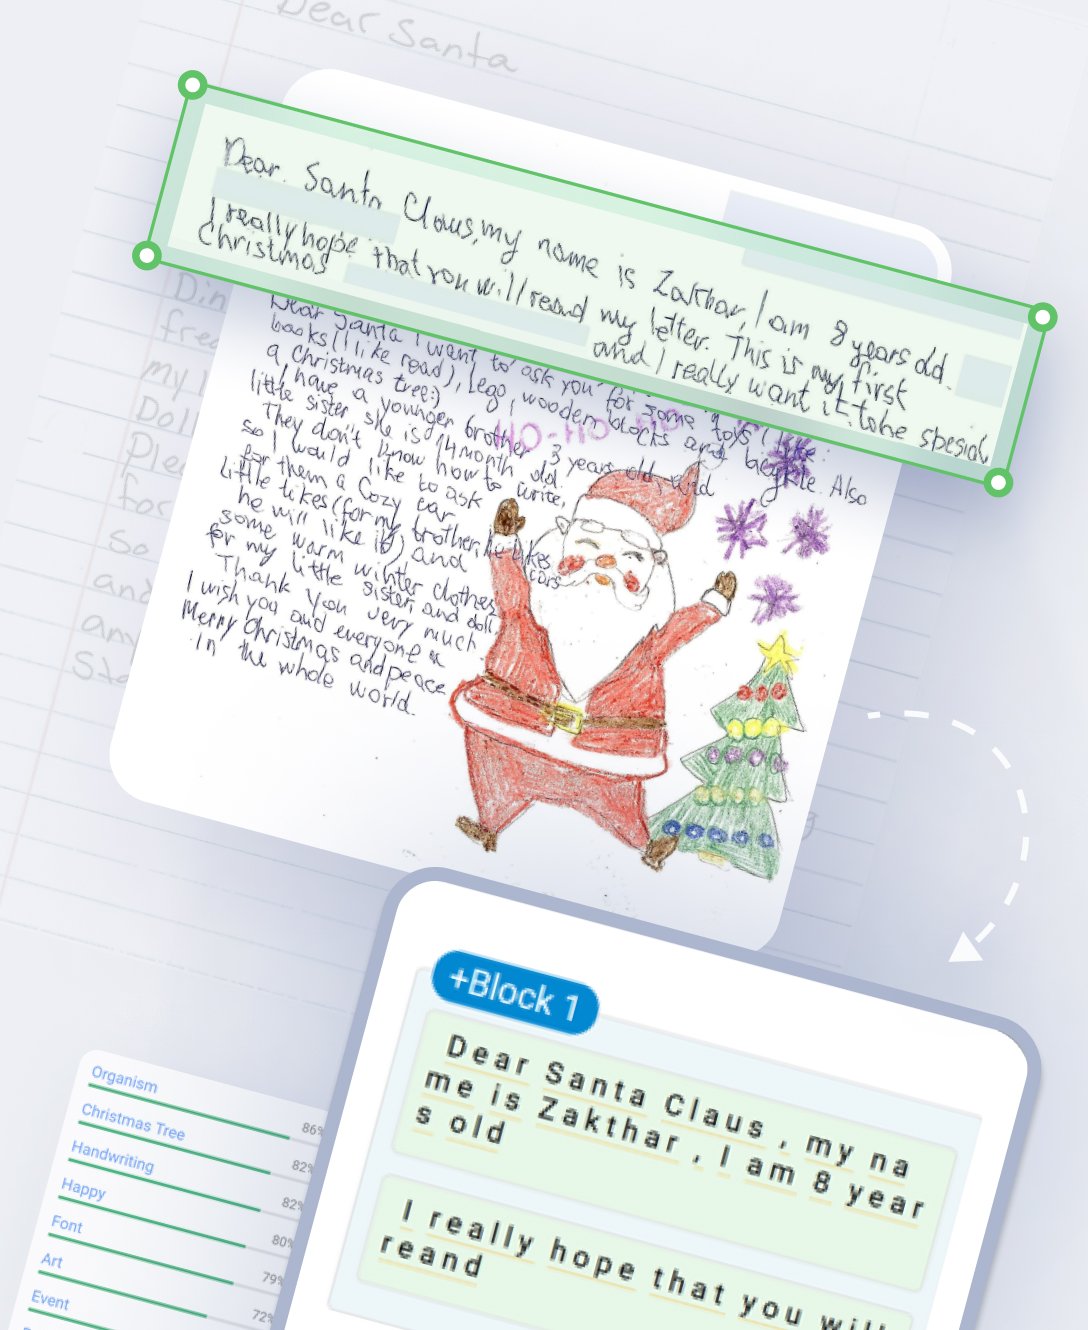 Dear Santa
Dear. Santa Claus, my name is Zakthar, I am 8 years old.
I really hope that you will reand my letter. This is my first
Christmas and I really want it to he spesial
Din
frea
my l
Doll
Plea
for
so
and
am
Sta
Dear Santa I want to ask you for some toys (I like
books (I like read), Lego, wooden blocks and bicycle. Also
a Christmas tree:)
HO-HO-HO
I have a younger brother, 3 years old and
little sister she is 14 month old.
They don't know how to write,
so I would like to ask
for them a Cozy car
Little tikes (for my brother, he likes cars
he will like it) and
some warm winter clothes
for my little sister and doll.
Thank you very much
I wish you and everyone a
Merry Christmas and peace
in the whole world.
+Block 1
Dear Santa Claus , my na
me is Zakthar , I am 8 year
s old
I really hope that you will
reand
Organism 86%
Christmas Tree 82%
Handwriting 82%
Happy 80%
Font 79%
Art 72%
Event